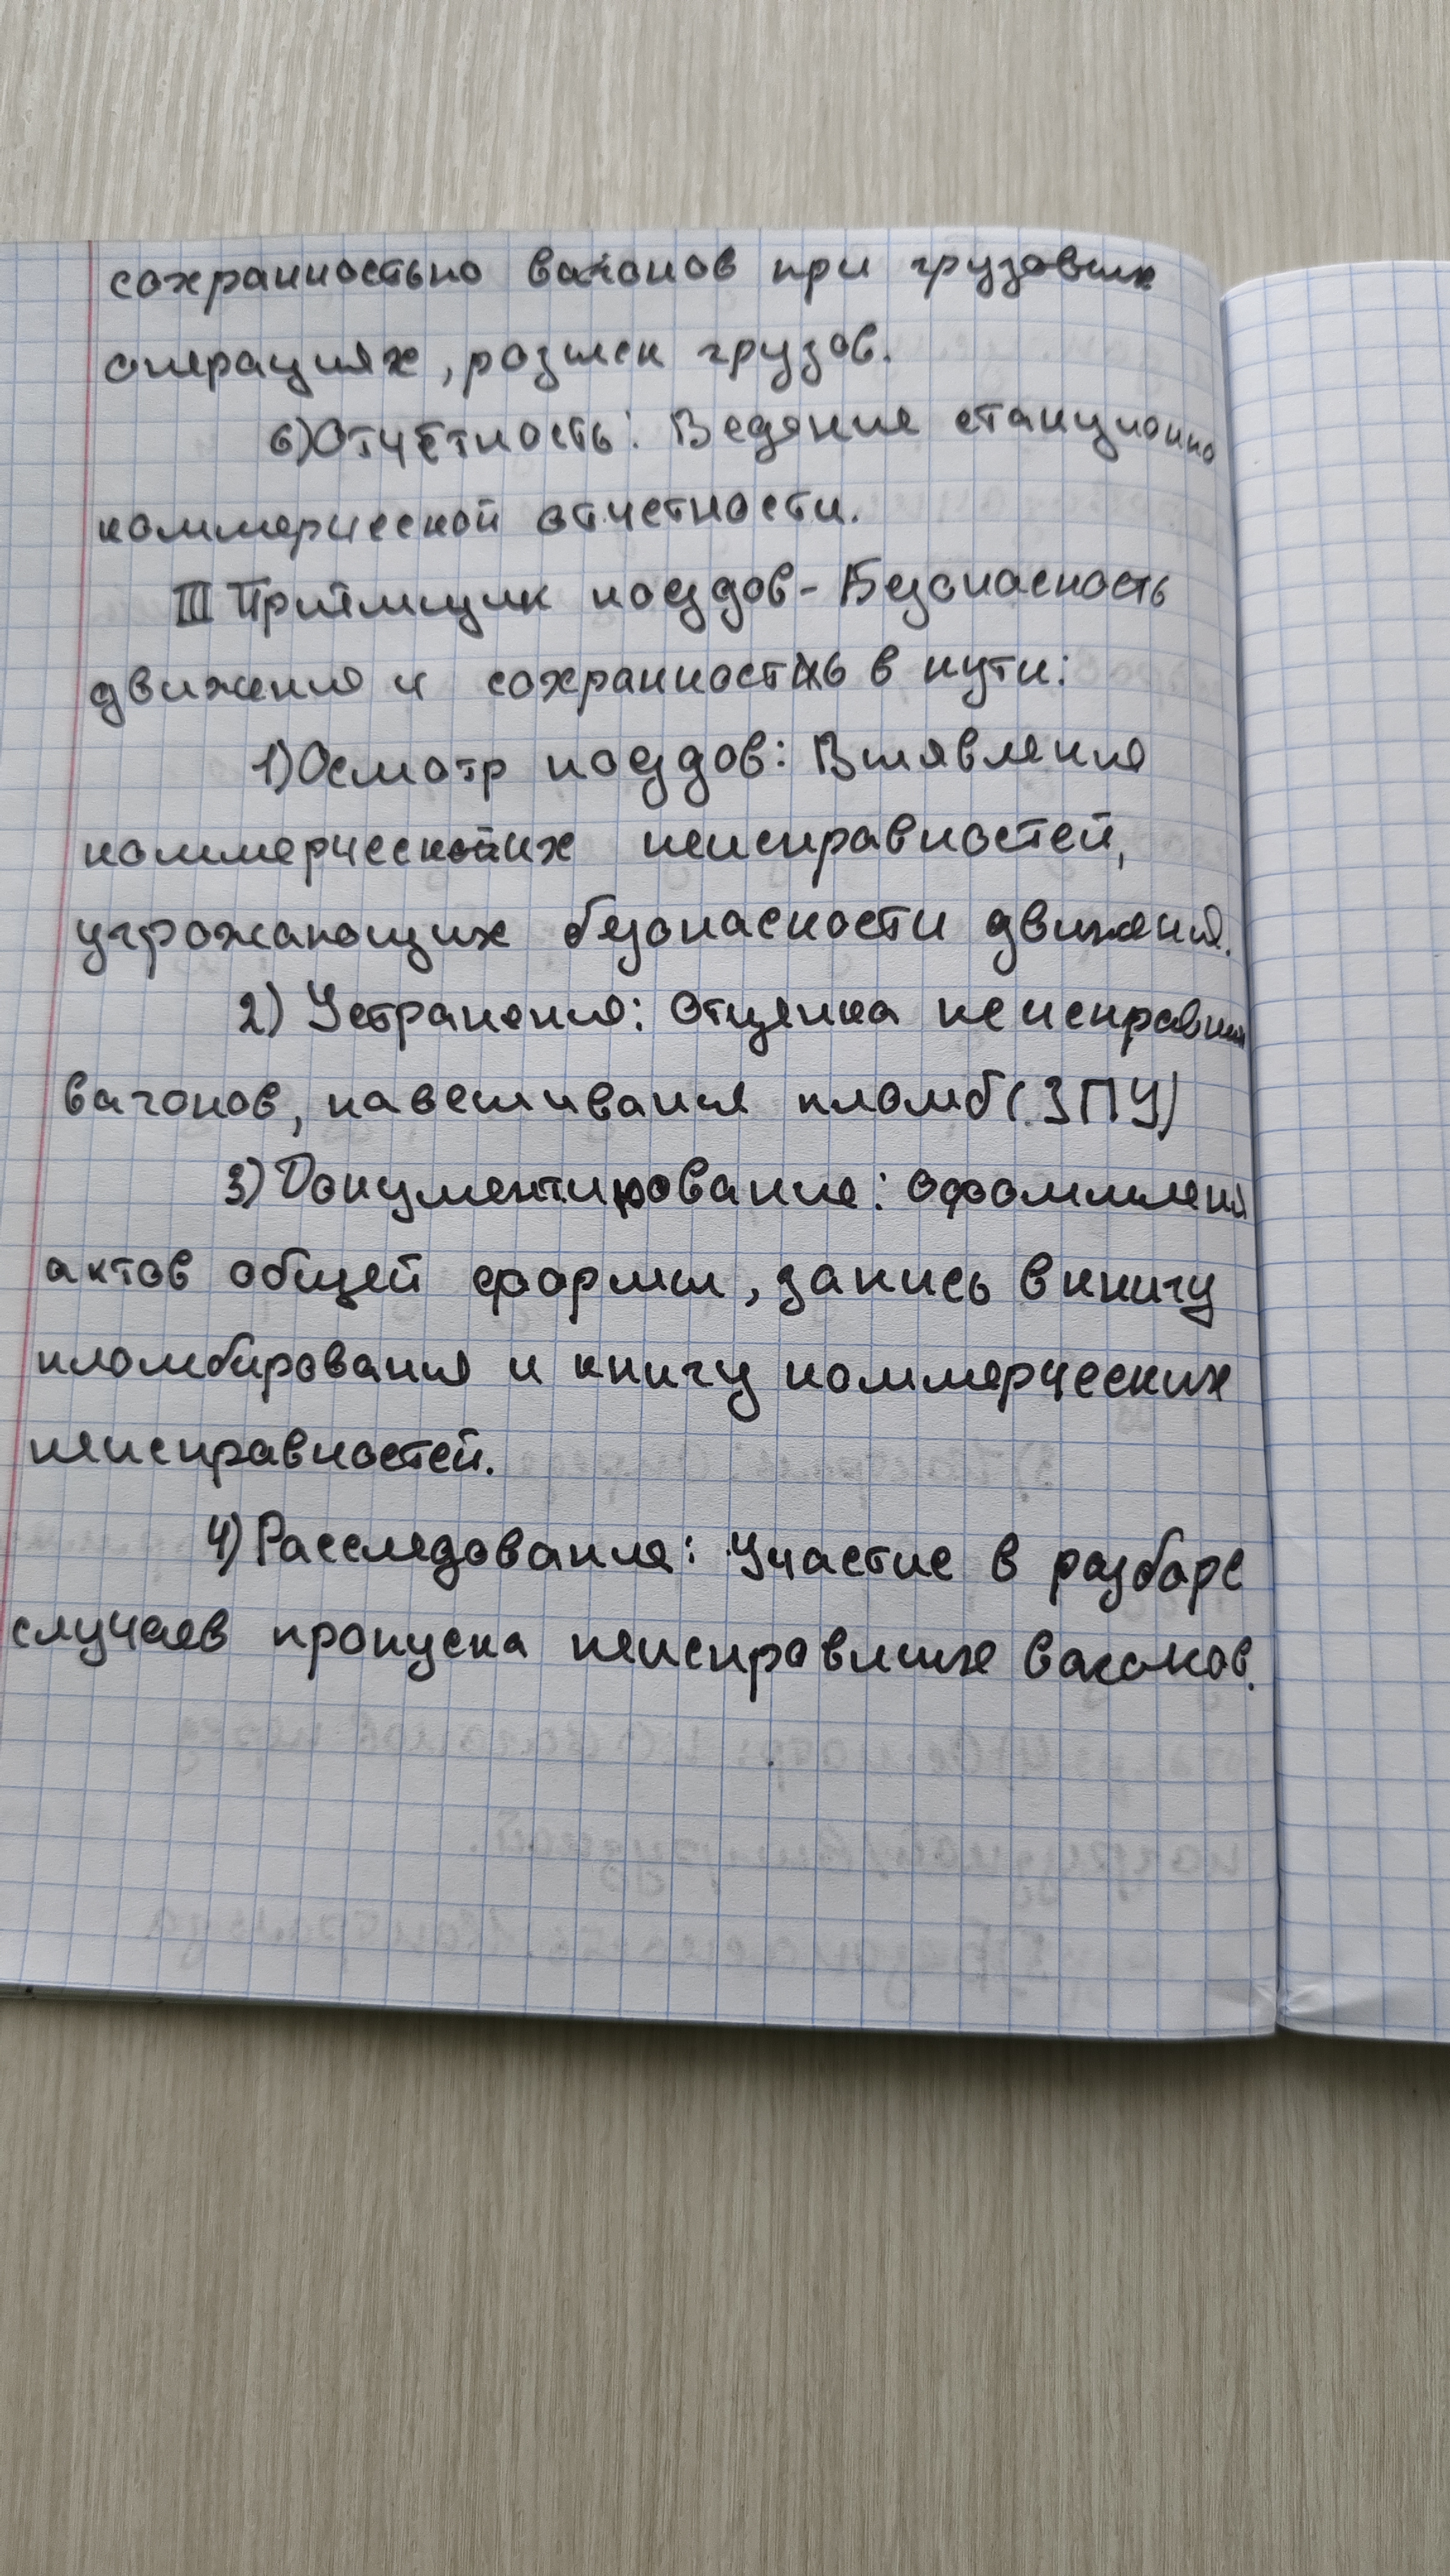 сохранностью вагонов при грузовых
операциях, розыск грузов.
6) Отчётность: Ведение станционно
коммерческой отчетности.
III Приёмщик поездов - Безопасность
движения и сохранность в пути:
1) Осмотр поездов: Выявление
коммерческих неисправностей,
угрожающих безопасности движения.
2) Устранение: Отцепка неисправных
вагонов, навешивание пломб (ЗПУ)
3) Документирование: Оформление
актов общей формы, запись в книгу
пломбирования и книгу коммерческих
неисправностей.
4) Расследование: Участие в разборе
случаев пропуска неисправных вагонов.